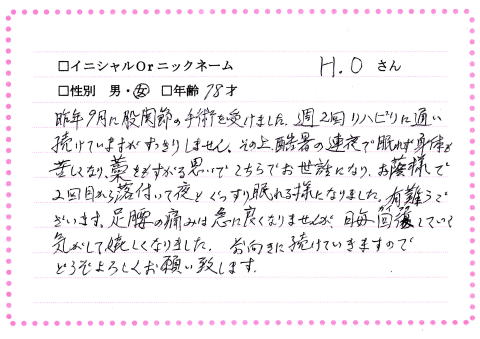 □イニシャルOrニックネーム H.O さん
□性別 男・女 □年齢 78才
昨年9月に股関節の手術を受けました。週2回リハビリに通い
続けていますがすっきりしません。その上、酷暑の連夜で眠れず身体が
苦しくなり、藁をもすがる思いでこちらでお世話になり、お蔭様で
2回目から落付いて夜もぐっすり眠れる様になりました。有難うご
ざいます。足腰の痛みは急に良くなりませんが、日毎回復している
気がして嬉しくなりました。お向きに続けていきますので
どうぞよろしくお願い致します。